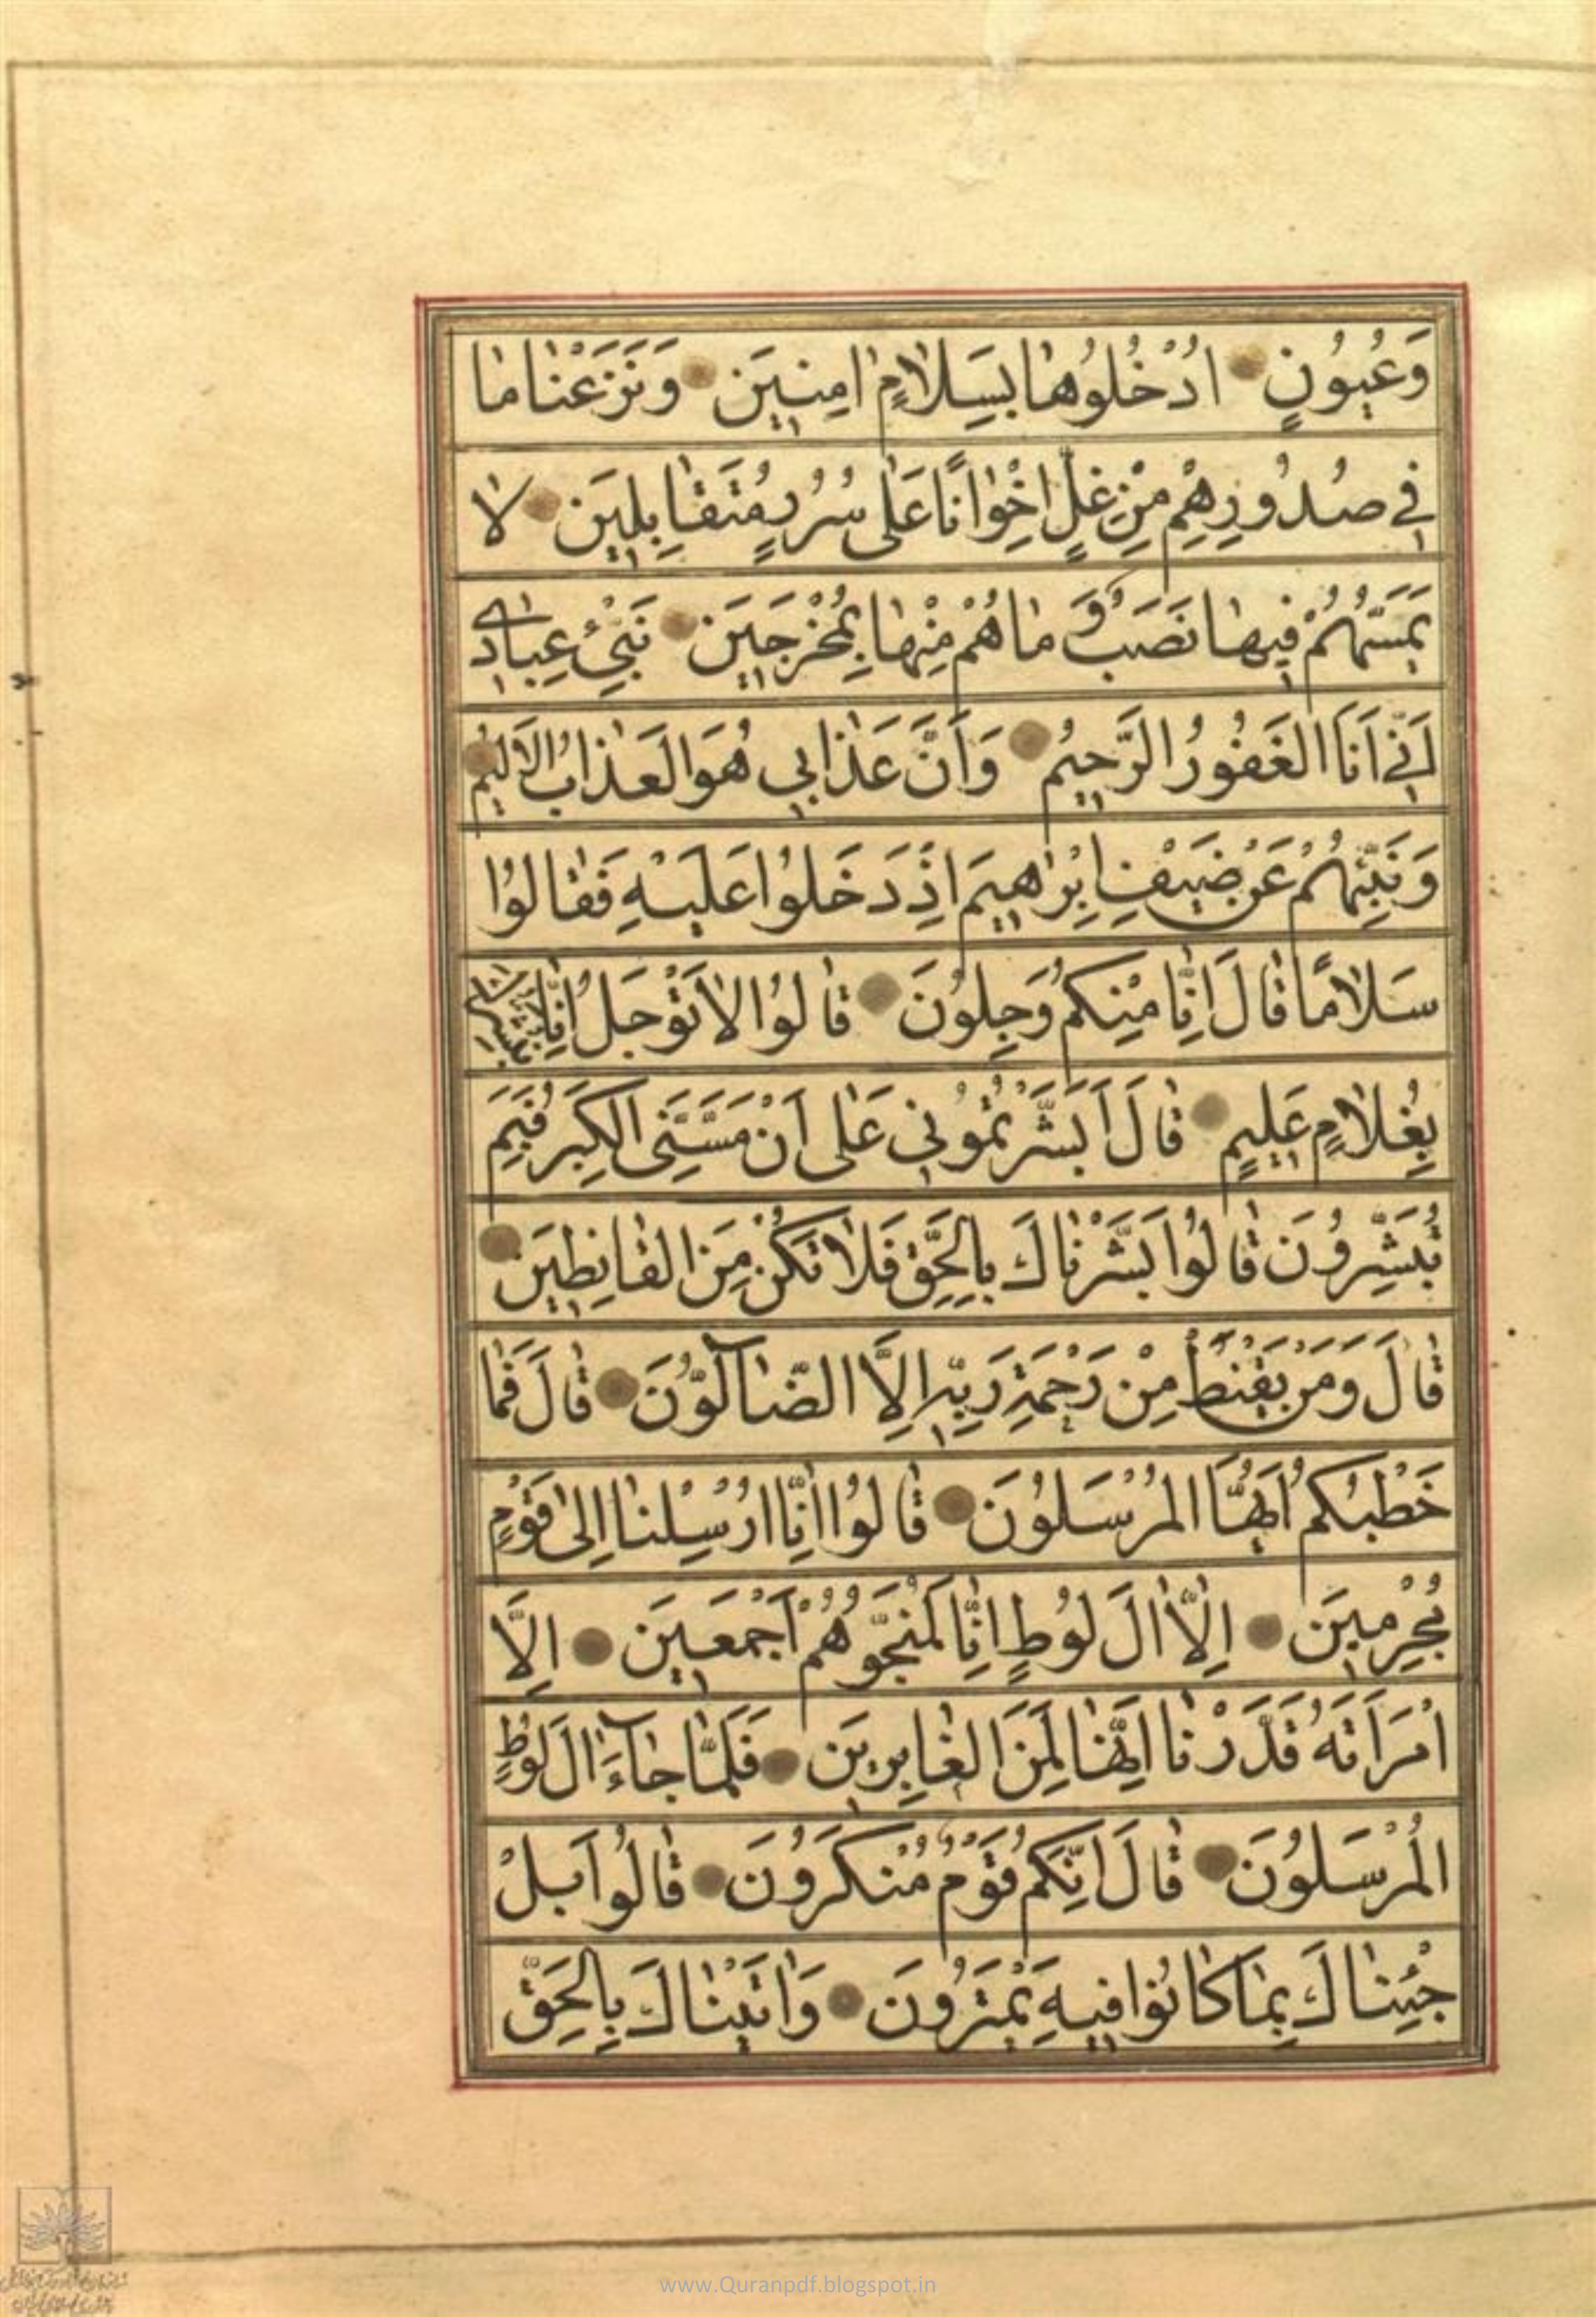 وَعُيُونٍ اُدْخُلُوهٰا بِسَلاٰمٍ اٰمِنِينَ وَنَزَعْنٰا مٰا
فِي صُدُورِهِمْ مِنْ غِلٍّ اِخْوٰانًا عَلٰى سُرُرٍ مُتَقٰابِلِينَ لاٰ
يَمَسُّهُمْ فِيهٰا نَصَبٌ وَمٰا هُمْ مِنْهٰا بِمُخْرَجِينَ نَبِّئْ عِبٰادِي
اَنِّي اَنَا الْغَفُورُ الرَّحِيمُ وَاَنَّ عَذٰابِي هُوَ الْعَذٰابُ الْاَلِيمُ
وَنَبِّئْهُمْ عَنْ ضَيْفِ اِبْرٰاهِيمَ اِذْ دَخَلُوا عَلَيْهِ فَقٰالُوا
سَلاٰمًا قٰالَ اِنّٰا مِنْكُمْ وَجِلُونَ قٰالُوا لاٰ تَوْجَلْ اِنّٰا نُبَشِّرُكَ
بِغُلاٰمٍ عَلِيمٍ قٰالَ اَبَشَّرْتُمُونِي عَلٰى اَنْ مَسَّنِيَ الْكِبَرُ فَبِمَ
تُبَشِّرُونَ قٰالُوا بَشَّرْنٰاكَ بِالْحَقِّ فَلاٰ تَكُنْ مِنَ الْقٰانِطِينَ
قٰالَ وَمَنْ يَقْنَطُ مِنْ رَحْمَةِ رَبِّهِ اِلَّا الضّٰآلُّونَ قٰالَ فَمٰا
خَطْبُكُمْ اَيُّهَا الْمُرْسَلُونَ قٰالُوا اِنّٰا اُرْسِلْنٰا اِلٰى قَوْمٍ
مُجْرِمِينَ اِلاّٰ اٰلَ لُوطٍ اِنّٰا لَمُنَجُّوهُمْ اَجْمَعِينَ اِلَّا
امْرَاَتَهُ قَدَّرْنٰا اِنَّهٰا لَمِنَ الْغٰابِرِينَ فَلَمّٰا جٰآءَ اٰلَ لُوطٍ
الْمُرْسَلُونَ قٰالَ اِنَّكُمْ قَوْمٌ مُنْكَرُونَ قٰالُوا بَلْ
جِئْنٰاكَ بِمٰا كٰانُوا فِيهِ يَمْتَرُونَ وَاَتَيْنٰاكَ بِالْحَقِّ
www.Quranpdf.blogspot.in